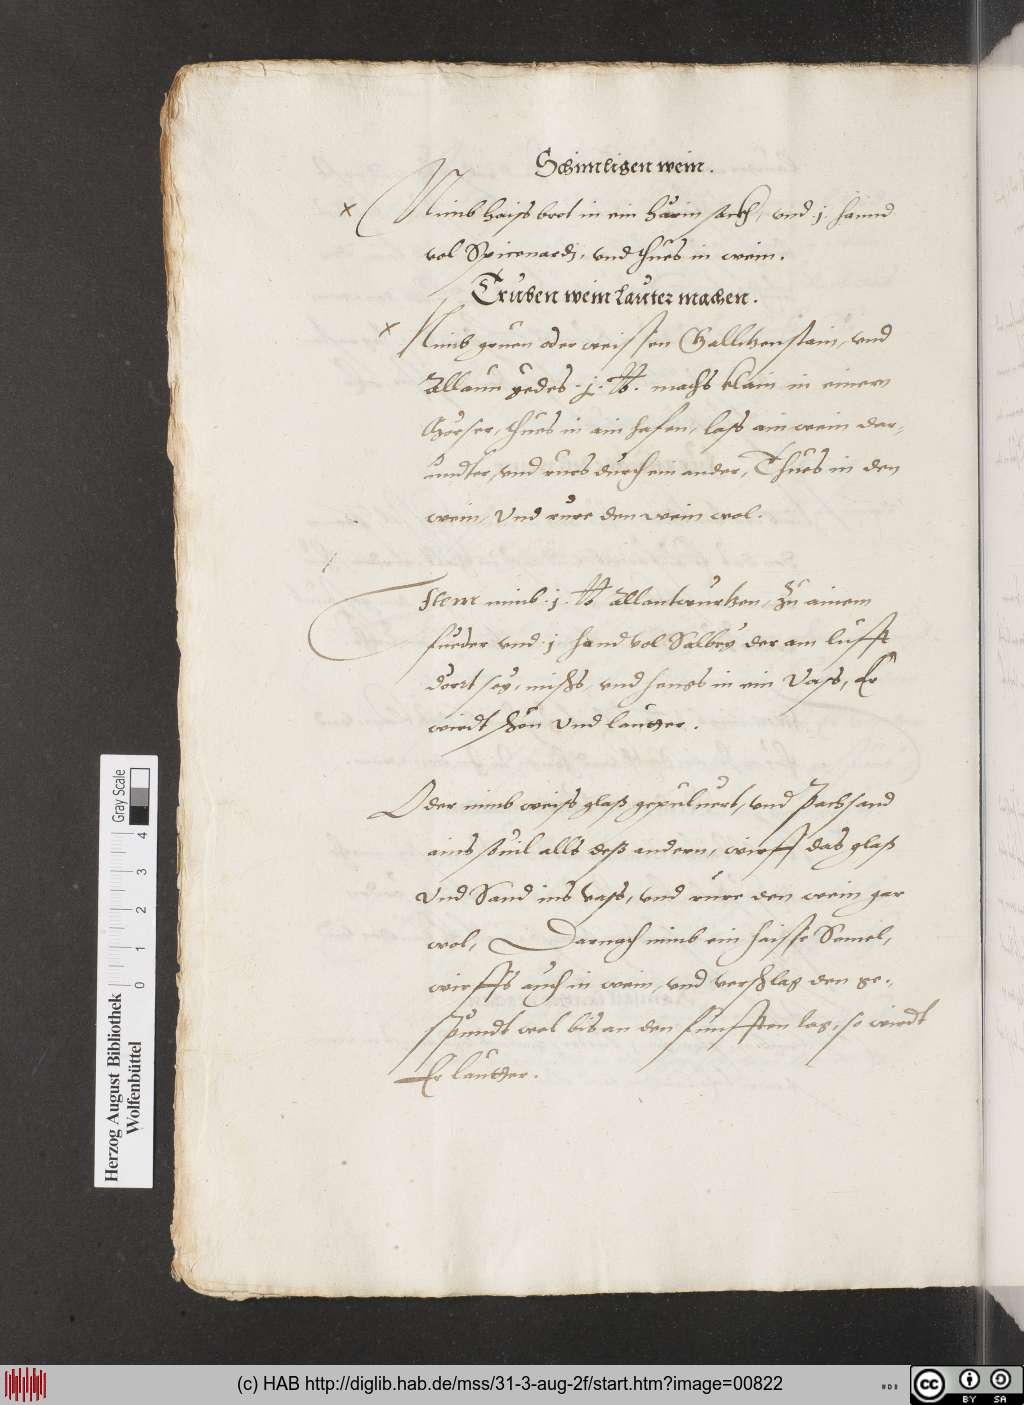 Schimligen wein.
× Nimb haiss brot in ein härin sackh, vnd .j. hannd
vol Spicenardj, vnd thues in wein.
Trüben wein lauter machen.
× Nimb gruen oder weissen Gallitzenstain, vnd
Allaun yedes .j. ℔. machs klain in einem
Mörser, thues in ain hafen, lass ain wein dar-
undter, vnd ruers durch ein ander, Thues in den
wein, Vnd rure den wein wol.
Item nimb .j. ℔ Allantwurtzen, zu ainem
fueder vnd .j. hand vol Salbey der am lufft
dorrt sey, mischs, vnd hengs in ein Vass, Er
wirdt schön Vnd lautter.
Oder nimb weiss glaß gepuluert, vnd Pachsand
ains souil alls deß andern, wirff das glaß
Vnd Sand ins vass, vnd rure den wein gar
wol, Darnach nimb ein haisse Semel,
wirffs auch in wein, vnd verschlag den ge-
spundt wol bis an den funfften tag, so wirdt
Er lautter.
Gray Scale
0 1 2 3 4
Herzog August Bibliothek
Wolfenbüttel
(c) HAB http://diglib.hab.de/mss/31-3-aug-2f/start.htm?image=00822
cc BY SA